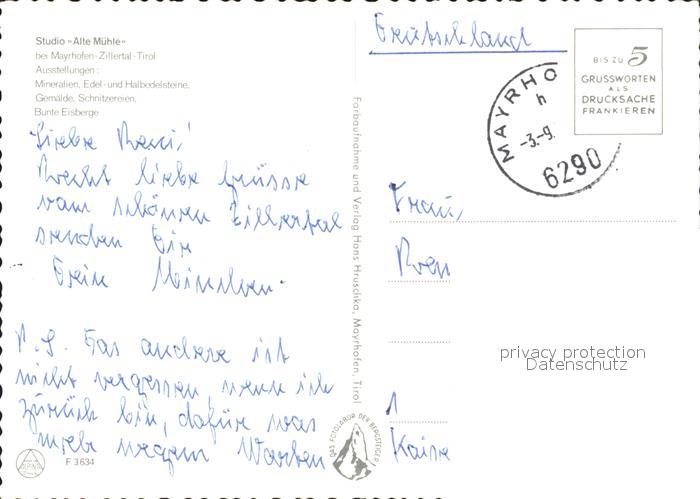 Studio »Alte Mühle«
bei Mayrhofen-Zillertal-Tirol
Ausstellungen:
Mineralien, Edel- und Halbedelsteine,
Gemälde, Schnitzereien,
Bunte Eisberge
Liebe
Recht liebe Grüsse
vom schönen Zillertal
senden Dir
Dein
P.S. Das andere ist
nicht vergessen, wenn ich
zurück bin, dafür was
mehr wegen Warten
F 3634
ALPINA
Farbaufnahme und Verlag Hans Hruschka, Mayrhofen, Tirol
DAS FOTOLABOR DER BERGSTEIGER
Deutschland
BIS ZU 5
GRUSSWORTEN
ALS
DRUCKSACHE
FRANKIEREN
MAYRHO
h
-3.-9.
6290
Frau
privacy protection
Datenschutz
1
Kaise